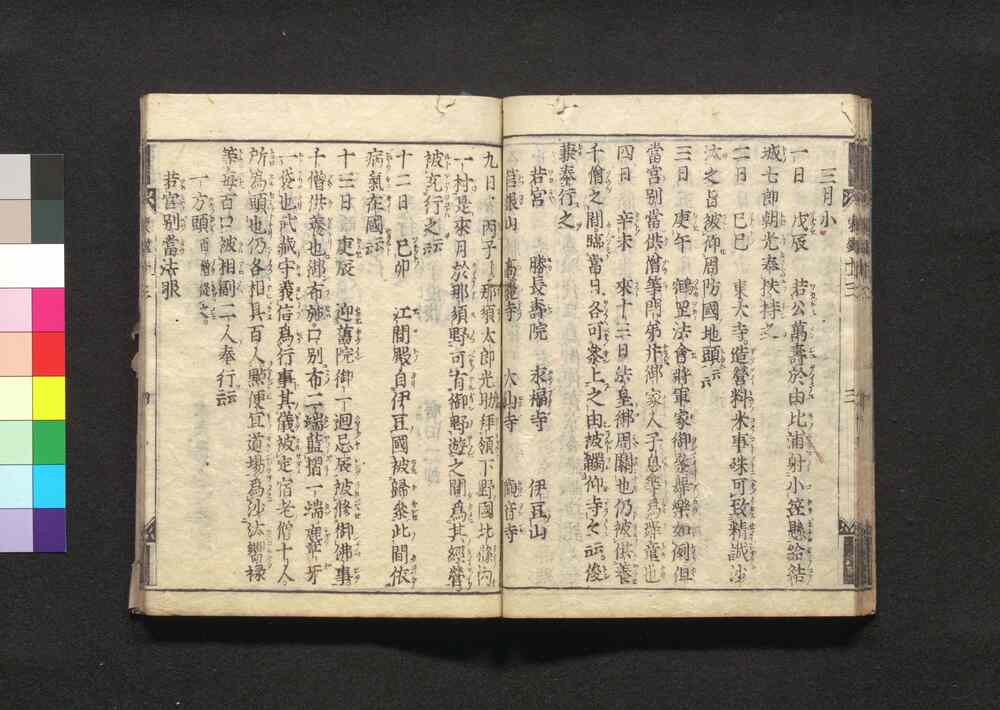 三月小
一日 戊辰 若公萬壽於由比浦射小笠懸給結
城七郎朝光奉扶持之
二日 己巳 東大寺造營料米事殊可致精誠沙
汰之旨被仰周防國地頭云云
三日 庚午 鶴岳法會將軍家御參舞樂如例但
當宮別當供僧等門弟并御家人子息等爲舞童也
四日 辛未 來十三日法皇御周闋也仍被供養
千僧之間臨當日各可參上之由被觸仰寺之云云俊
兼奉行之
若宮 勝長壽院 永福寺 伊豆山
筥根山 高麗寺 大山寺 觀音寺
九日 丙子 那須太郎光助拜領下野國北條內
一村是來月於那須野可有御野遊之間爲其經營
被充行之云云
十二日 己卯 江間殿自伊豆國被歸參此間依
病氣在國云云
十三日 庚辰 迎舊院御一迴忌辰被修御佛事
千僧供養也御布施口別布二端藍摺一端麞牙
一袋也武藏守義信爲行事其儀被定宿老僧十人
所爲頭也仍各相具百人點便宜道場爲沙汰嚫祿
等每百口被相副二人奉行云云
一方頭百僧從之
若宮別當法眼